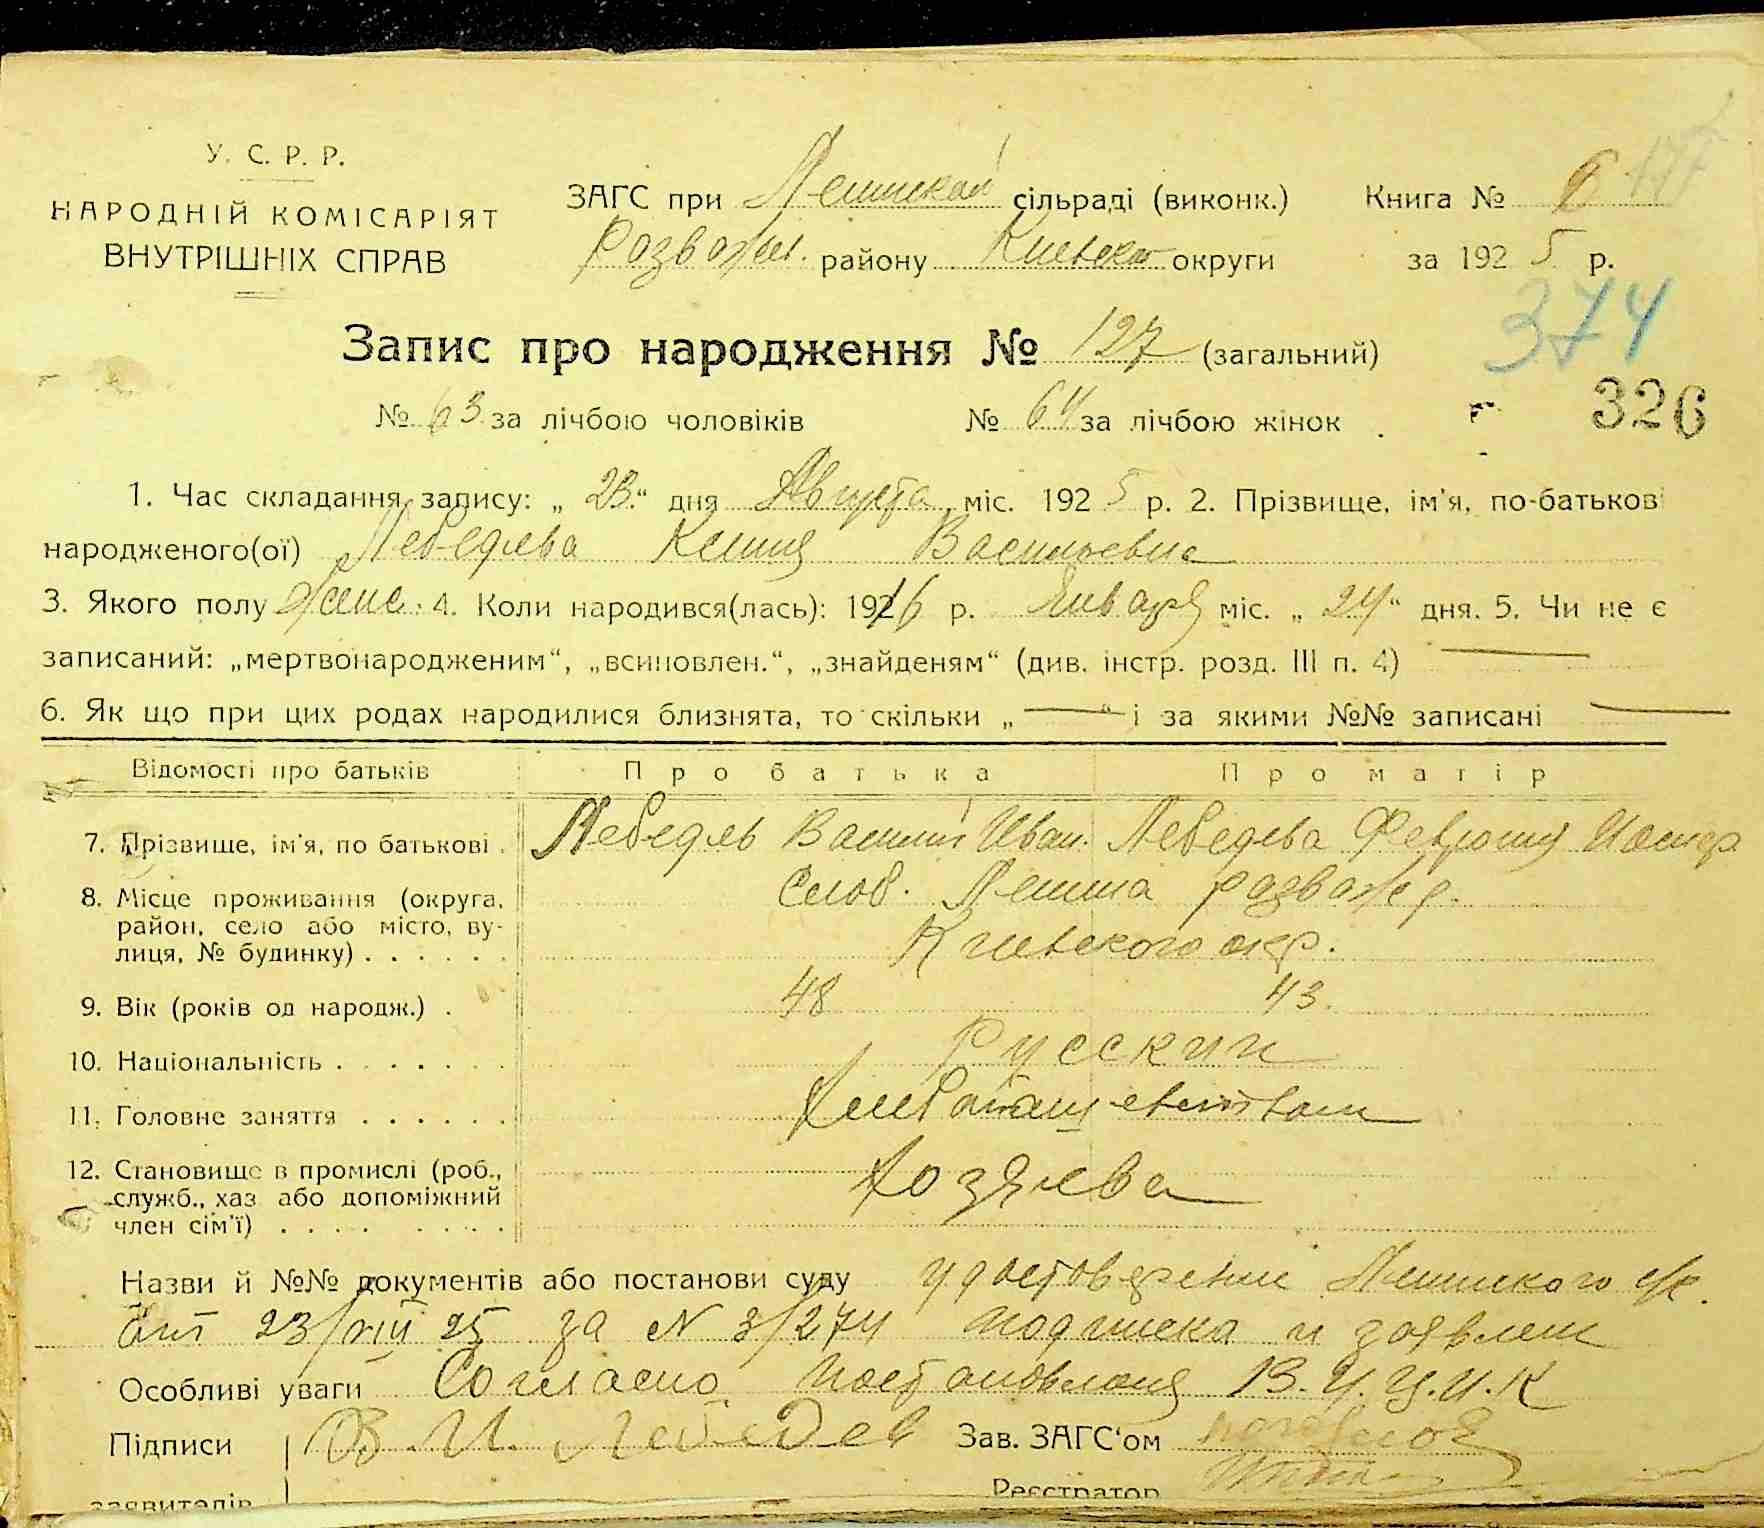 У. С. Р. Р.
НАРОДНІЙ КОМІСАРІЯТ
ВНУТРІШНІХ СПРАВ
ЗАГС при Леминской сільраді (виконк.) Книга №
Розваж. району Киевско округи за 1925 р.
374
Запис про народження № 127 (загальний)
326
№ 63 за лічбою чоловіків № 64 за лічбою жінок
1. Час складання запису: „23“ дня Августа міс. 1925 р. 2. Прізвище, ім'я, по-батькові
народженого(ої) Лебедева Ксения Васильевна
3. Якого полу женс. 4. Коли народився(лась): 1916 р. Января міс. „24“ дня. 5. Чи не є
записаний: „мертвонародженим“, „всиновлен.“, „знайденям“ (див. інстр. розд. III п. 4) —
6. Як що при цих родах народилися близнята, то скільки „—“ і за якими №№ записані —
Відомості про батьків Про батька Про матір
7. Прізвище, ім'я, по батькові . Лебедев Василий Иван. Лебедева Феврония Иосиф
8. Місце проживання (округа, Слоб. Лешма развож р.
район, село або місто, ву-
лиця, № будинку) . . . . . . Киевского окр.
9. Вік (років од народж.) . 48 43.
10. Національність . . . . . . . Русский
11. Головне заняття . . . . . . Хлебопашевством
12. Становище в промислі (роб., Хозяева
служб., хаз або допоміжний
член сім'ї) . . . . . . . .
Назви й №№ документів або постанови суду удостоверение Леминского с/р.
от 23/VIII 25 за N 3/274 подписка и заявлен
Особливі уваги Согласно постановления В.У.Ц.И.К
Підписи В. И. Лебедев Зав. ЗАГС'ом
заявителів Реєстратор